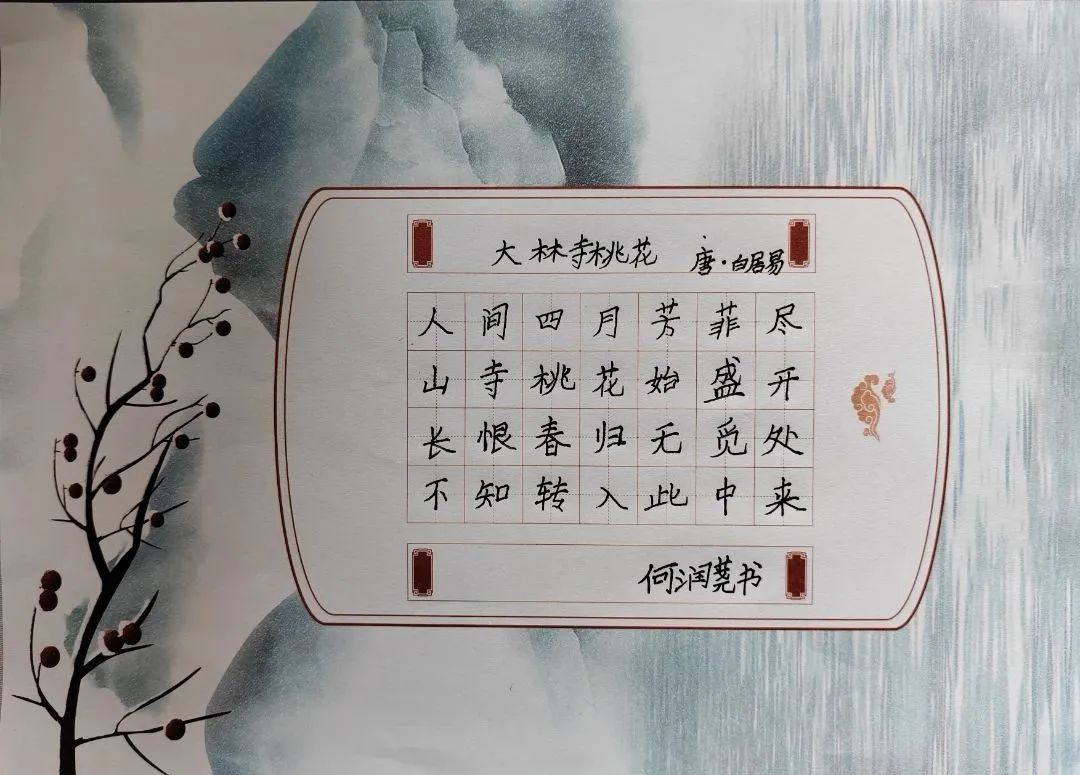 大林寺桃花 唐·白居易
人间四月芳菲尽
山寺桃花始盛开
长恨春归无觅处
不知转入此中来
何润荛书